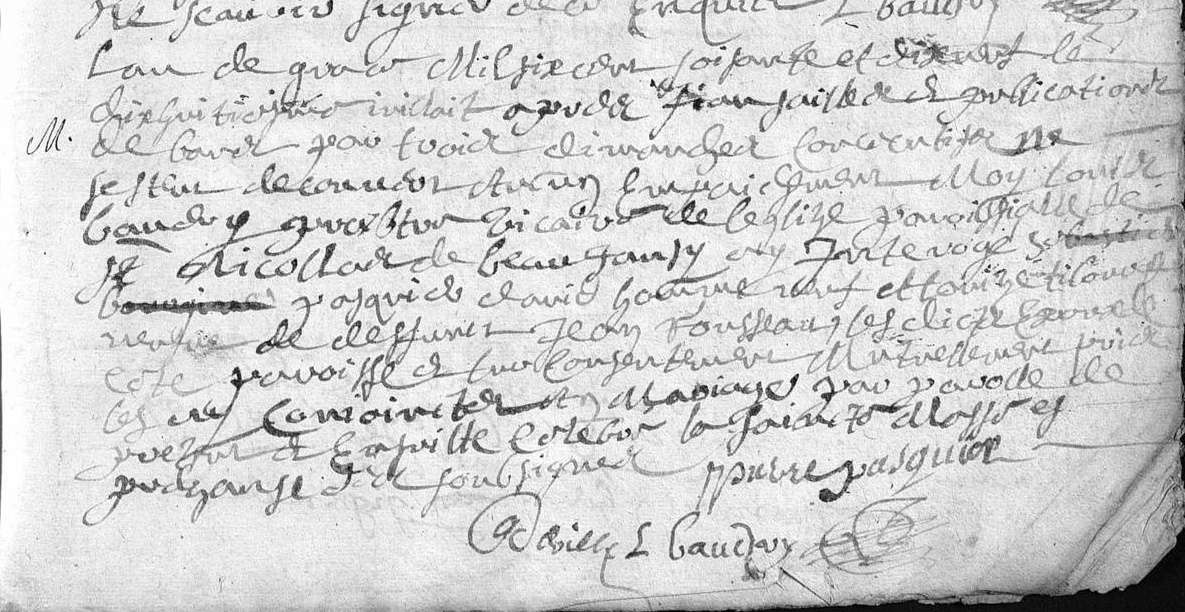 scavoir signer de ce Enquis L baudry
Lan de grace Mil six cent soisante et dixneuf le
dixhuitiesme juillait apres les fiansailles et publications
M. de bans par trois dimanches consecutifz ne
sestent decouvert Aucun Empaichement Moy Louis
baudry prestre vicaire de leglize paroissialle de
st Nicollas de beaugansy ay Interogé
pasquier david homme veuf et
veufve de deffunct Jean Rousseau
ceste paroisse et leur consentement Mutuellement pris
les ay Conjoinctes en Mariage par parolle de
present et Ensuitte Celebré la sainte Messe es
presanse des soubsignes pierre pasquier
L baudry